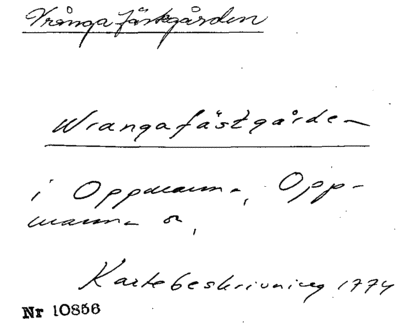 Vrånga fästgården
Wrangafästgårde-
i Oppmanna, Opp-
manna sn,
Kartebeskrivning 1774
Nr 10856